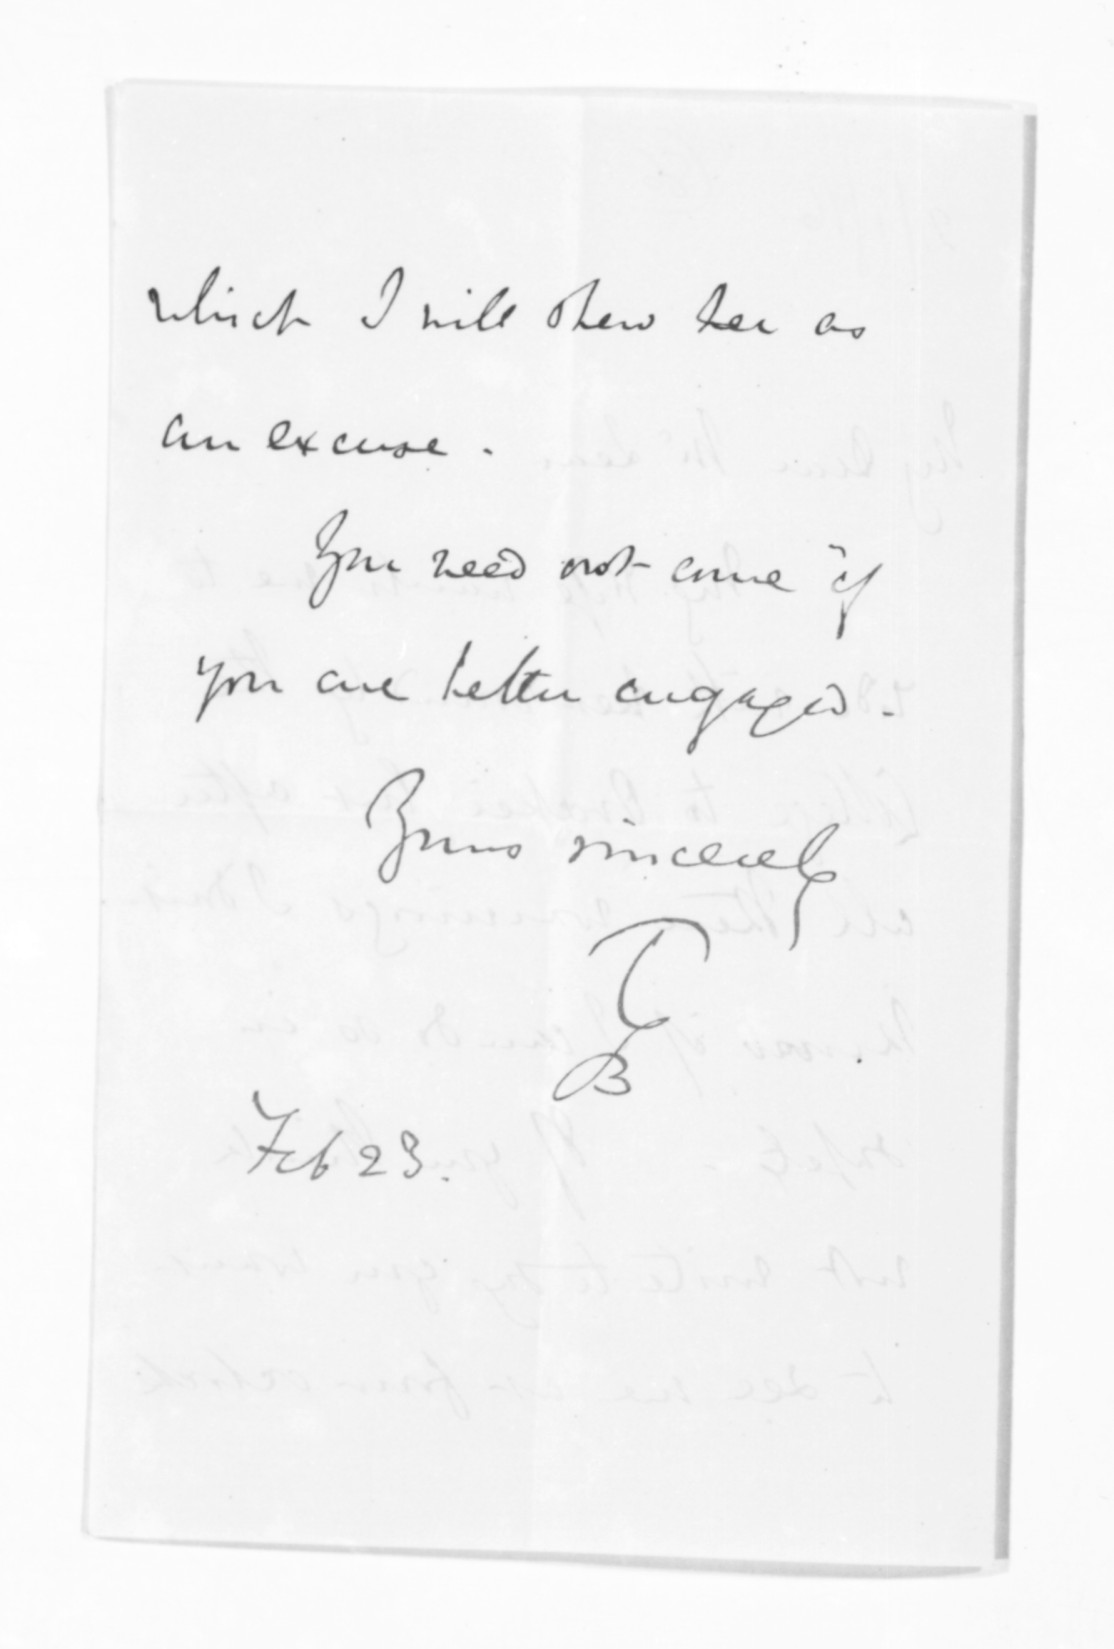 which I will shew her as
an excuse.
You need not come if
you are better engaged.
Yours sincerely
T
B
Feb 23.